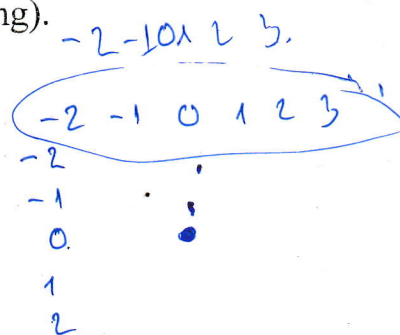 ng).
-2 -1 0 1 2 3.
-2 -1 0 1 2 3
-2
-1
0.
1
2